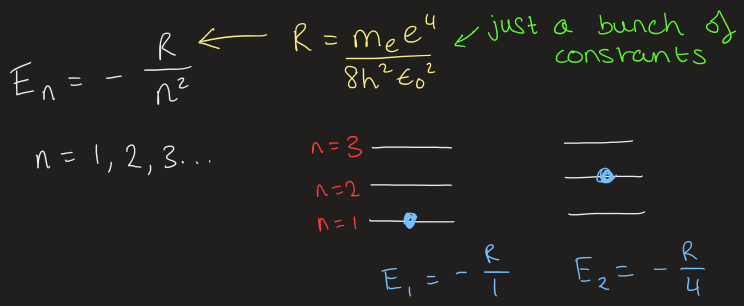 Eₙ = - R/n² ← R = mₑe⁴/8h²ε₀² ← just a bunch of constants
n = 1, 2, 3...
n=3
n=2
n=1
E₁ = - R/1
E₂ = - R/4